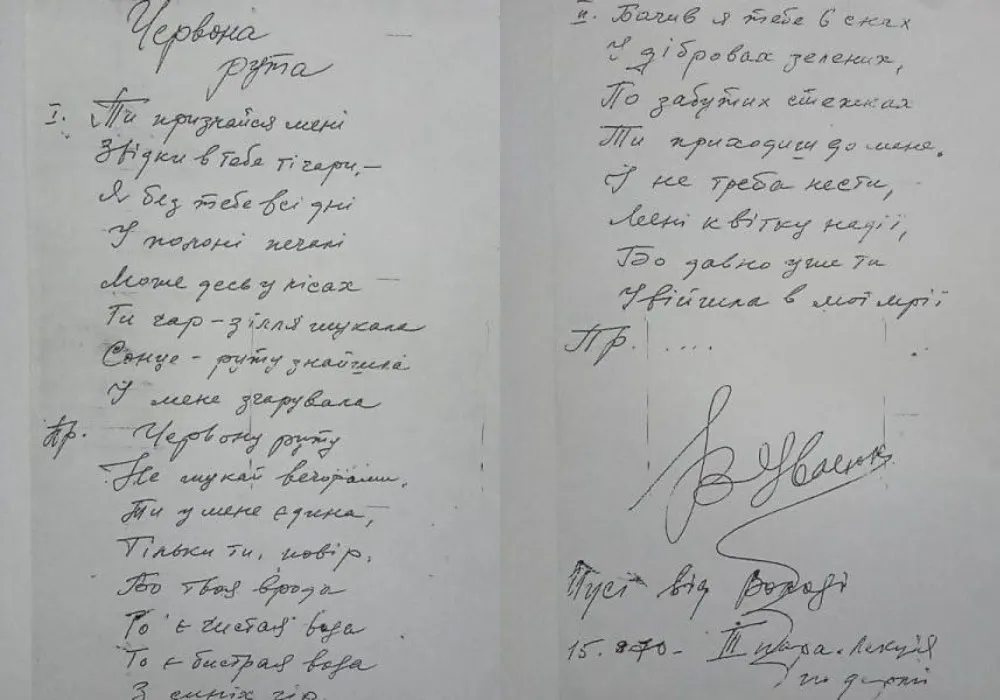 Червона
рута
I. Ти признайся мені
Звідки в тебе ті чари, –
Я без тебе всі дні
У полоні печалі
Може десь у лісах
Ти чар-зілля шукала
Сонце-руту знайшла
І мене зчарувала
Пр. Червону руту
Не шукай вечорами.
Ти у мене єдина,
Тільки ти, повір.
Бо твоя врода
То є чистая вода
То є бистрая вода
З синіх гір.
II. Бачив я тебе в снах
У дібровах зелених,
По забутих стежках
Ти приходиш до мене.
І не треба нести,
Мені квітку надії,
Бо давно уже ти
Увійшла в мої мрії
Пр. ....
В Івасюк
від Володі
15. 70 - III пара. Лекція
по